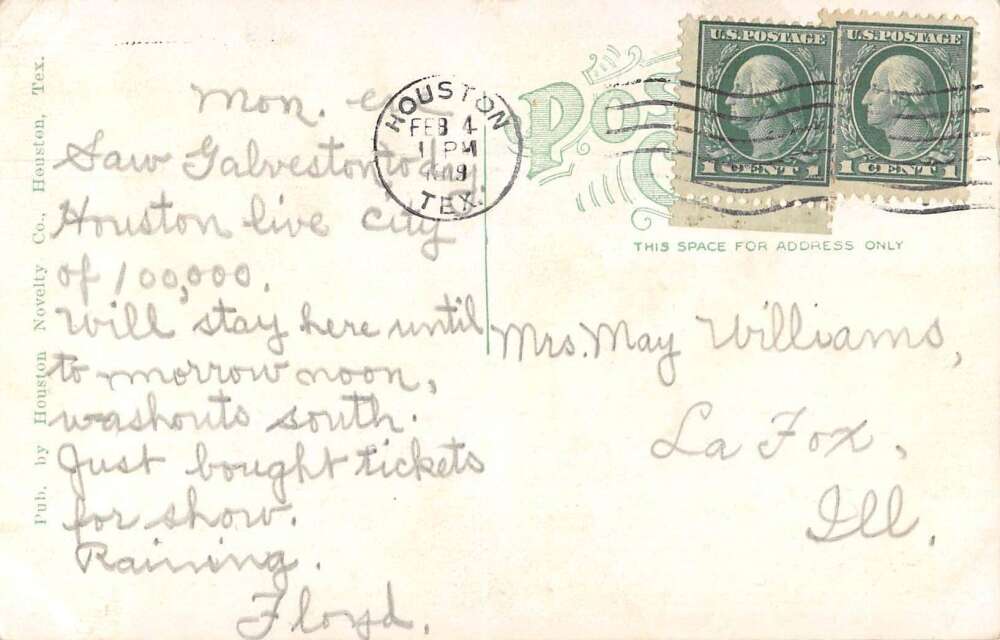 Pub. by Houston Novelty Co., Houston, Tex.
Mon.
Saw Galveston today.
Houston live city
of 100,000.
Will stay here until
to morrow noon,
washouts south.
Just bought tickets
for show.
Raining.
Floyd.
HOUSTON
FEB 4
11 PM
TEX.
U.S. POSTAGE
1 CENT 1
U.S. POSTAGE
1 CENT 1
THIS SPACE FOR ADDRESS ONLY
Mrs. May Williams,
La Fox,
Ill.